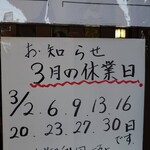 お知らせ
3月の休業日
3/2.6.9.13.16
20.23.27.30日
です。